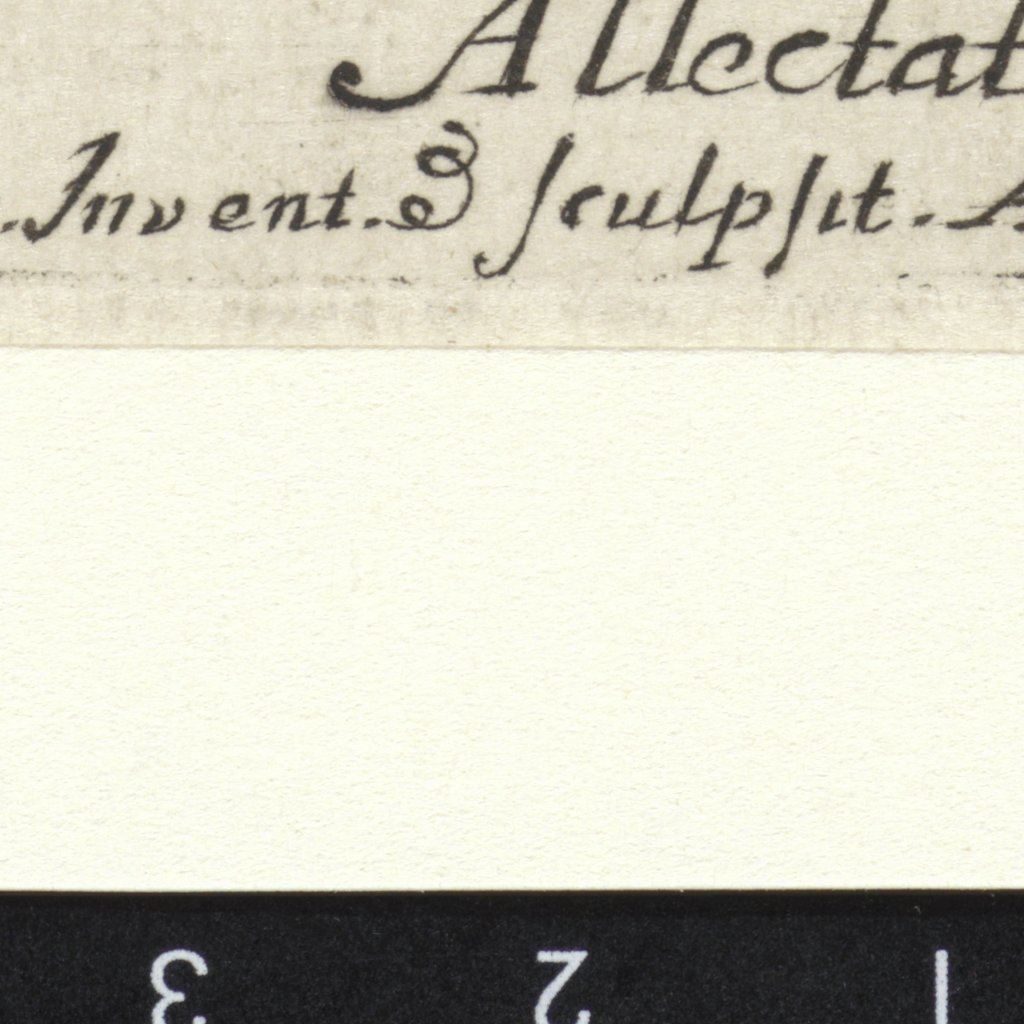 Allectat
. Invent. & ſculpſit. A
3 2 1